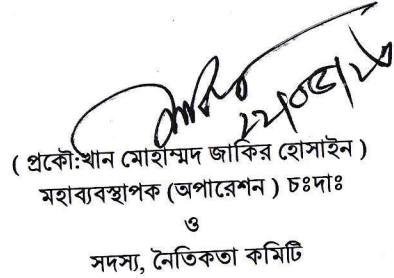 ( প্রকৌ:খান মোহাম্মদ জাকির হোসাইন )
মহাব্যবস্থাপক (অপারেশন ) চঃদাঃ
ও
সদস্য, নৈতিকতা কমিটি